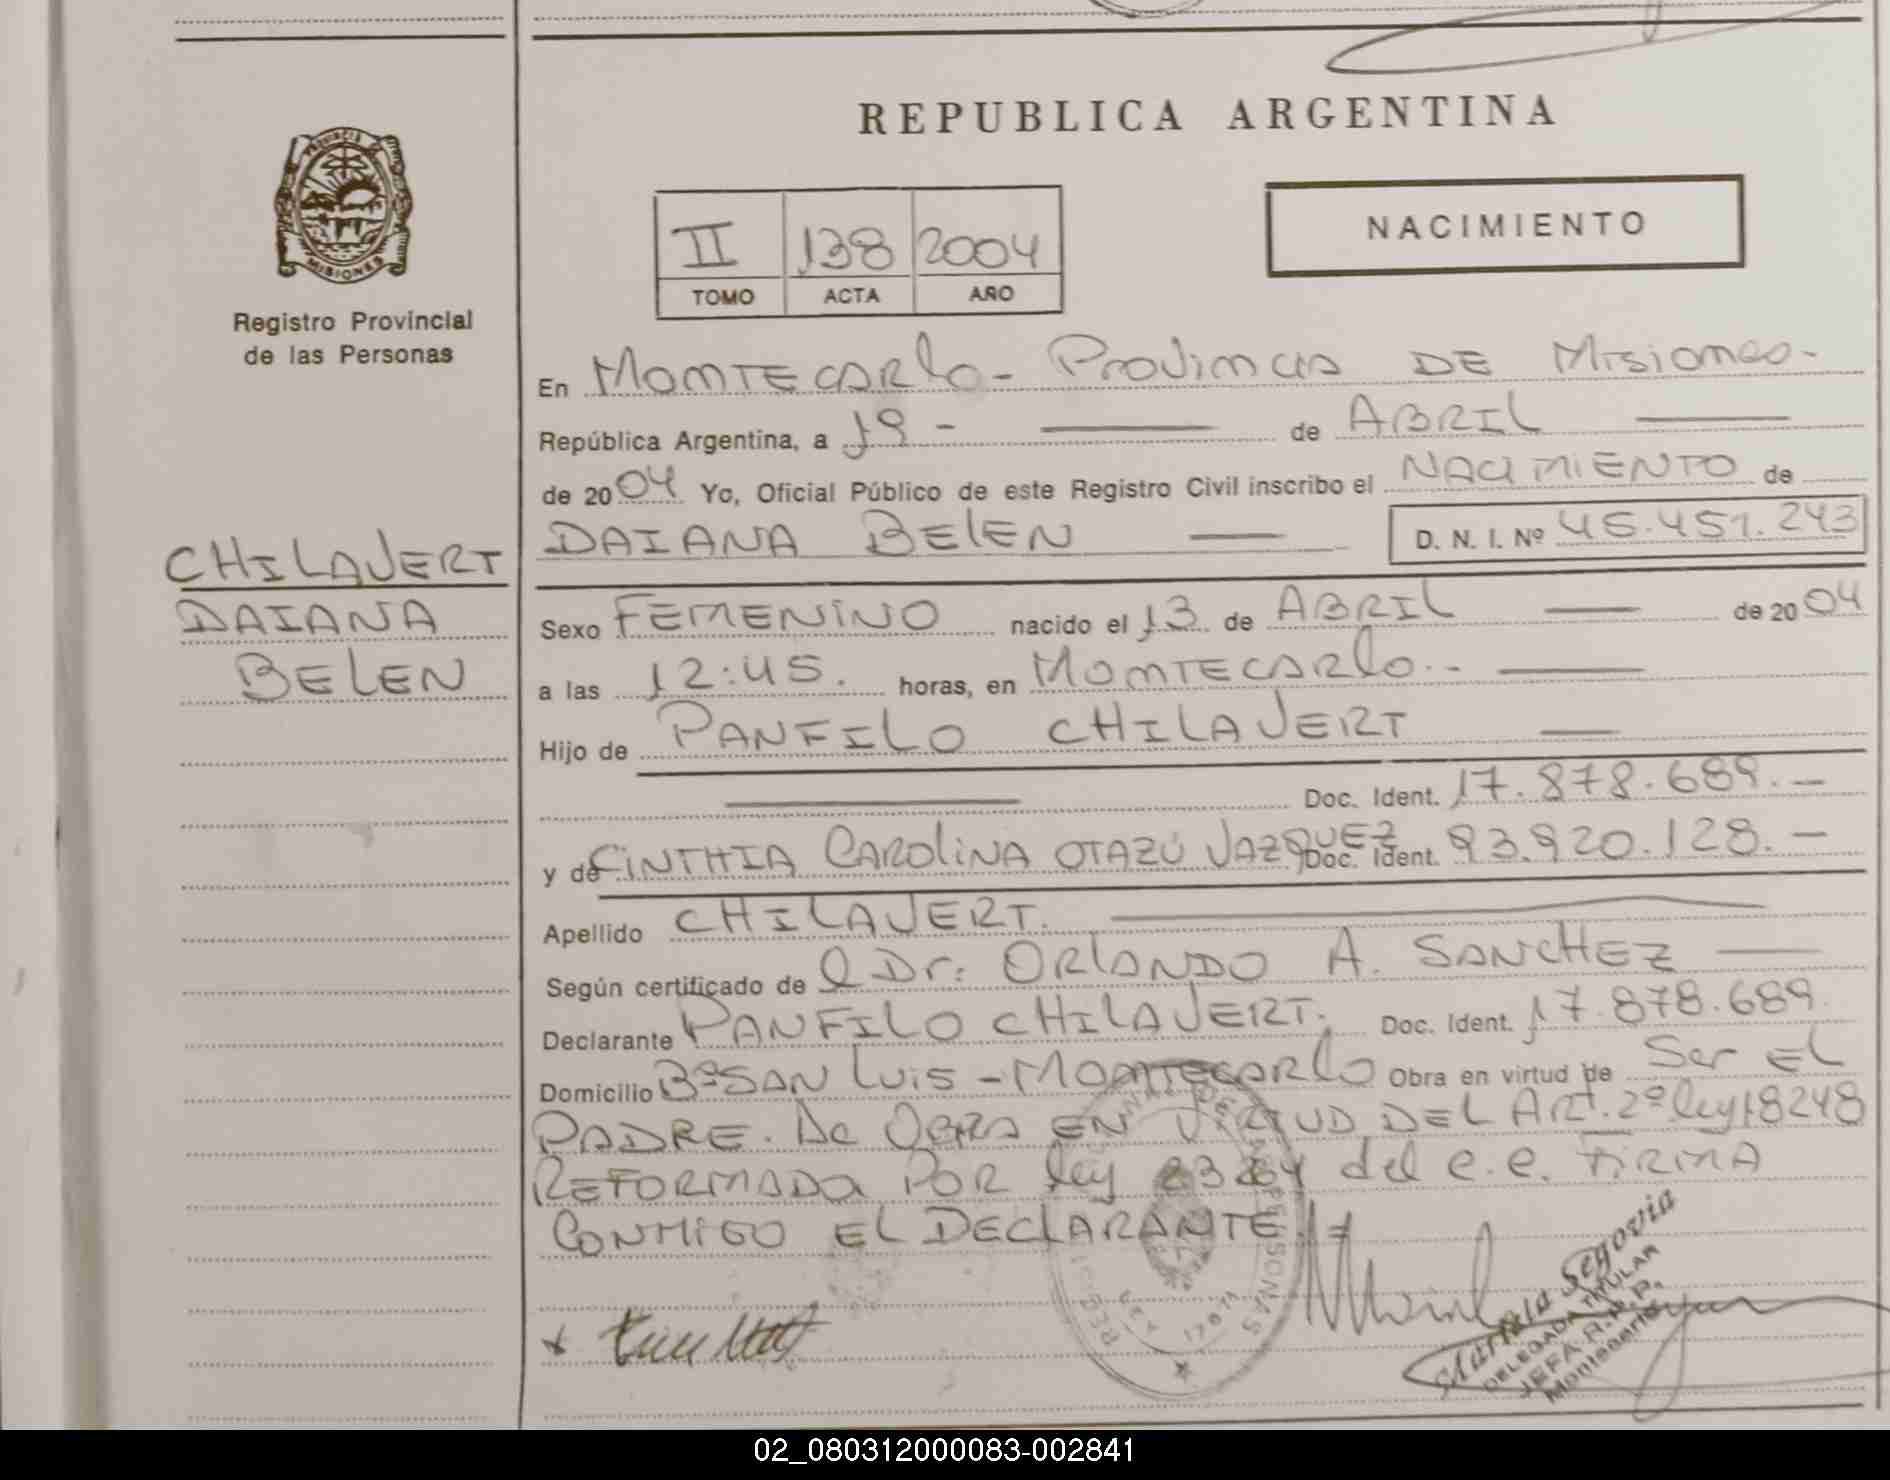 REPUBLICA ARGENTINA
NACIMIENTO
II 138 2004
TOMO ACTA AÑO
PROVINCIA DE
MISIONES
Registro Provincial
de las Personas
En MONTECARLO - PROVINCIA DE MISIONES-
República Argentina, a 19 - de ABRIL
de 2004 Yo, Oficial Público de este Registro Civil inscribo el NACIMIENTO de
DAIANA BELEN D. N. I. Nº 45.451.243
CHILAVERT
DAIANA
BELEN
Sexo FEMENINO nacido el 13 de ABRIL de 2004
a las 12:45. horas, en MONTECARLO.-
Hijo de PANFILO CHILAVERT
Doc. Ident. 17.878.689.-
y de CINTHIA CAROLINA OTAZÚ VAZQUEZ Doc. Ident. 93.920.128.-
Apellido CHILAVERT.
Según certificado de Dr. ORLANDO A. SANCHEZ
Declarante PANFILO CHILAVERT. Doc. Ident. 17.878.689.
Domicilio Bº SAN LUIS - MONTECARLO Obra en virtud de Ser EL
PADRE. De OBRA EN VIRTUD DEL ART. 2º ley 18248
REFORMADA POR ley del C.C. FIRMA
CONMIGO EL DECLARANTE.
REGIST DE LAS PERSONAS
Maria Segovia
DELEGADA TITULAR
JEFA R.P.P.
Montecarlo
02_080312000083-002841